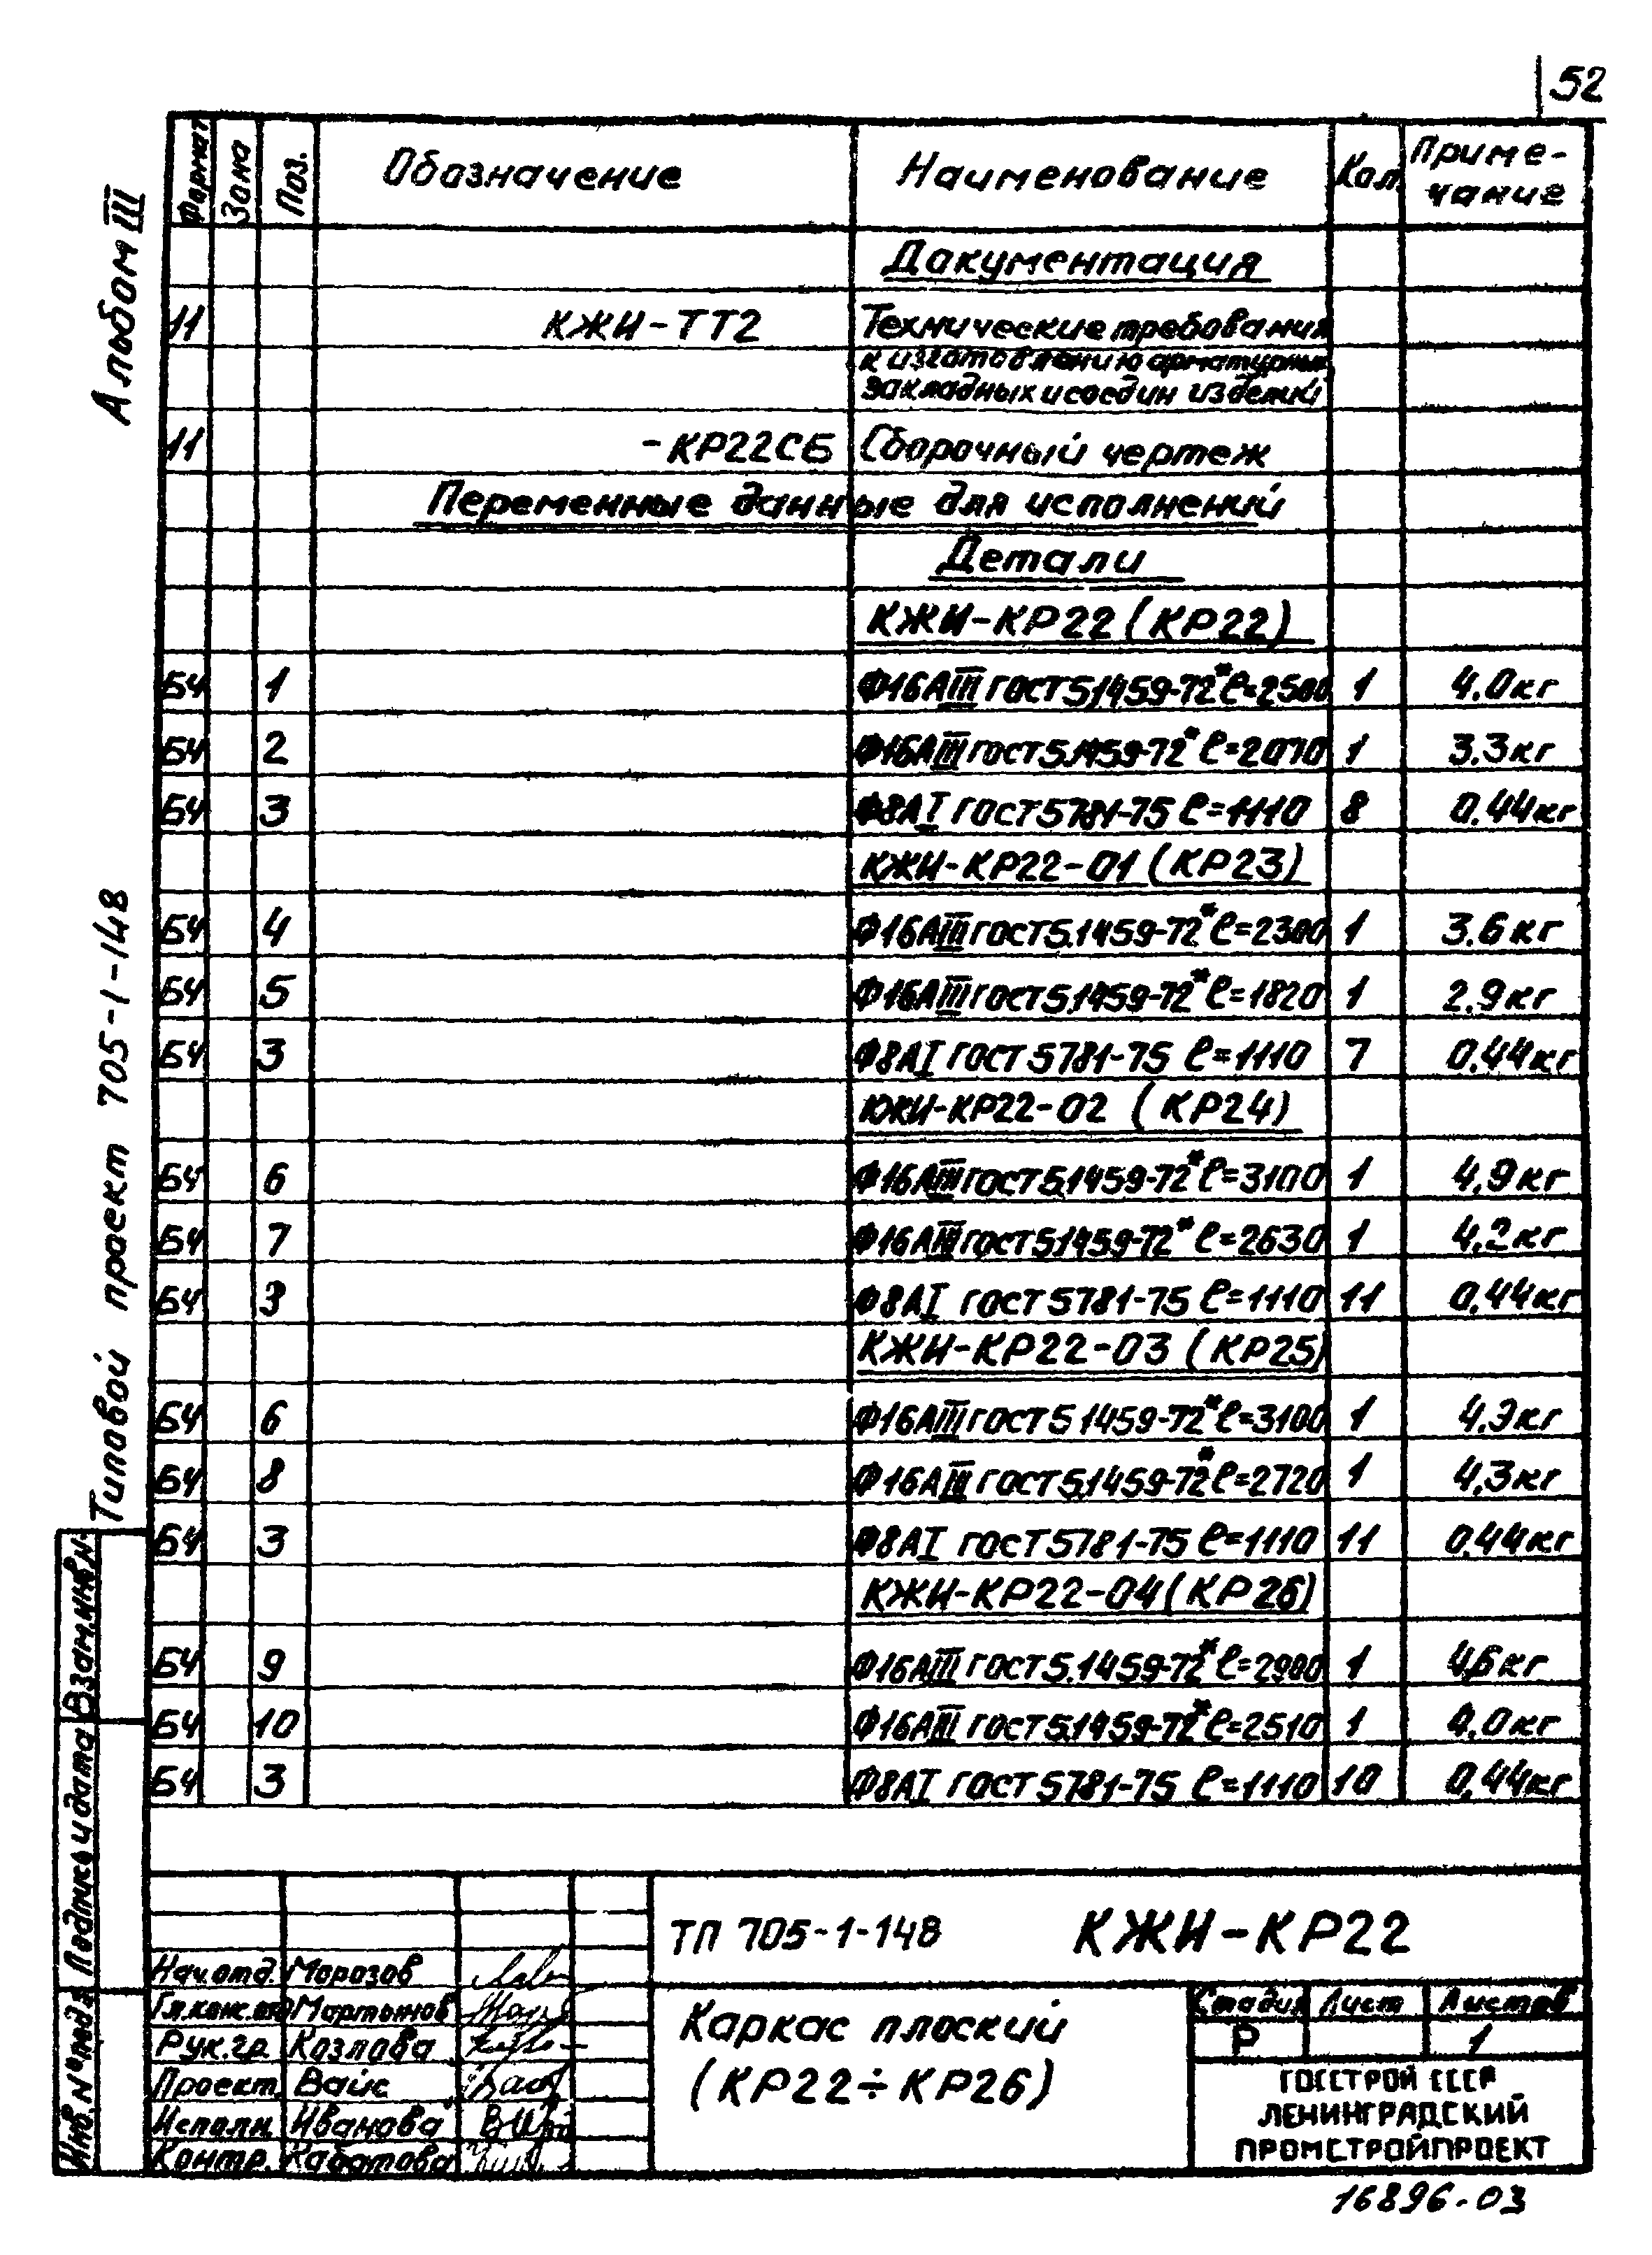 52
Альбом III
Типовой проект 705-1-148
Формат Зона Поз. Обозначение Наименование Кол. Приме-
чание
Документация
11 КЖИ-ТТ2 Технические требования
к изготовлению арматурных
закладных и соедин изделий
11 -КР22СБ Сборочный чертеж
Переменные данные для исполнений
Детали
КЖИ-КР22 (КР22)
БЧ 1 Ф16АIII ГОСТ 5.1459-72* ℓ=2500 1 4.0кг
БЧ 2 Ф16АIII ГОСТ 5.1459-72* ℓ=2070 1 3.3кг
БЧ 3 Ф8АI ГОСТ 5781-75 ℓ=1110 8 0.44кг
КЖИ-КР22-01 (КР23)
БЧ 4 Ф16АIII ГОСТ 5.1459-72* ℓ=2300 1 3.6кг
БЧ 5 Ф16АIII ГОСТ 5.1459-72* ℓ=1820 1 2.9кг
БЧ 3 Ф8АI ГОСТ 5781-75 ℓ=1110 7 0.44кг
КЖИ-КР22-02 (КР24)
БЧ 6 Ф16АIII ГОСТ 5.1459-72* ℓ=3100 1 4,9кг
БЧ 7 Ф16АIII ГОСТ 5.1459-72* ℓ=2630 1 4,2кг
БЧ 3 Ф8АI ГОСТ 5781-75 ℓ=1110 11 0.44кг
КЖИ-КР22-03 (КР25)
БЧ 6 Ф16АIII ГОСТ 5 1459-72* ℓ=3100 1 4,9кг
БЧ 8 Ф16АIII ГОСТ 5.1459-72* ℓ=2720 1 4,3кг
БЧ 3 Ф8АI ГОСТ 5781-75 ℓ=1110 11 0.44кг
КЖИ-КР22-04 (КР26)
БЧ 9 Ф16АIII ГОСТ 5.1459-72* ℓ=2900 1 4,6кг
БЧ 10 Ф16АIII ГОСТ 5.1459-72* ℓ=2510 1 4.0кг
БЧ 3 Ф8АI ГОСТ 5781-75 ℓ=1110 10 0,44кг
Взам.инв.N
Подпись и дата
Инв.N°подл.
ТП 705-1-148 КЖИ-КР22
Нач.отд. Морозов
Гл.конс.отд Мартынов
Рук.гр. Козлова
Проект. Вайс
Исполн. Иванова
Контр. Работова
Каркас плоский
(КР22÷КР26)
Стадия Лист Листов
Р 1
ГОССТРОЙ СССР
ЛЕНИНГРАДСКИЙ
ПРОМСТРОЙПРОЕКТ
16896-03